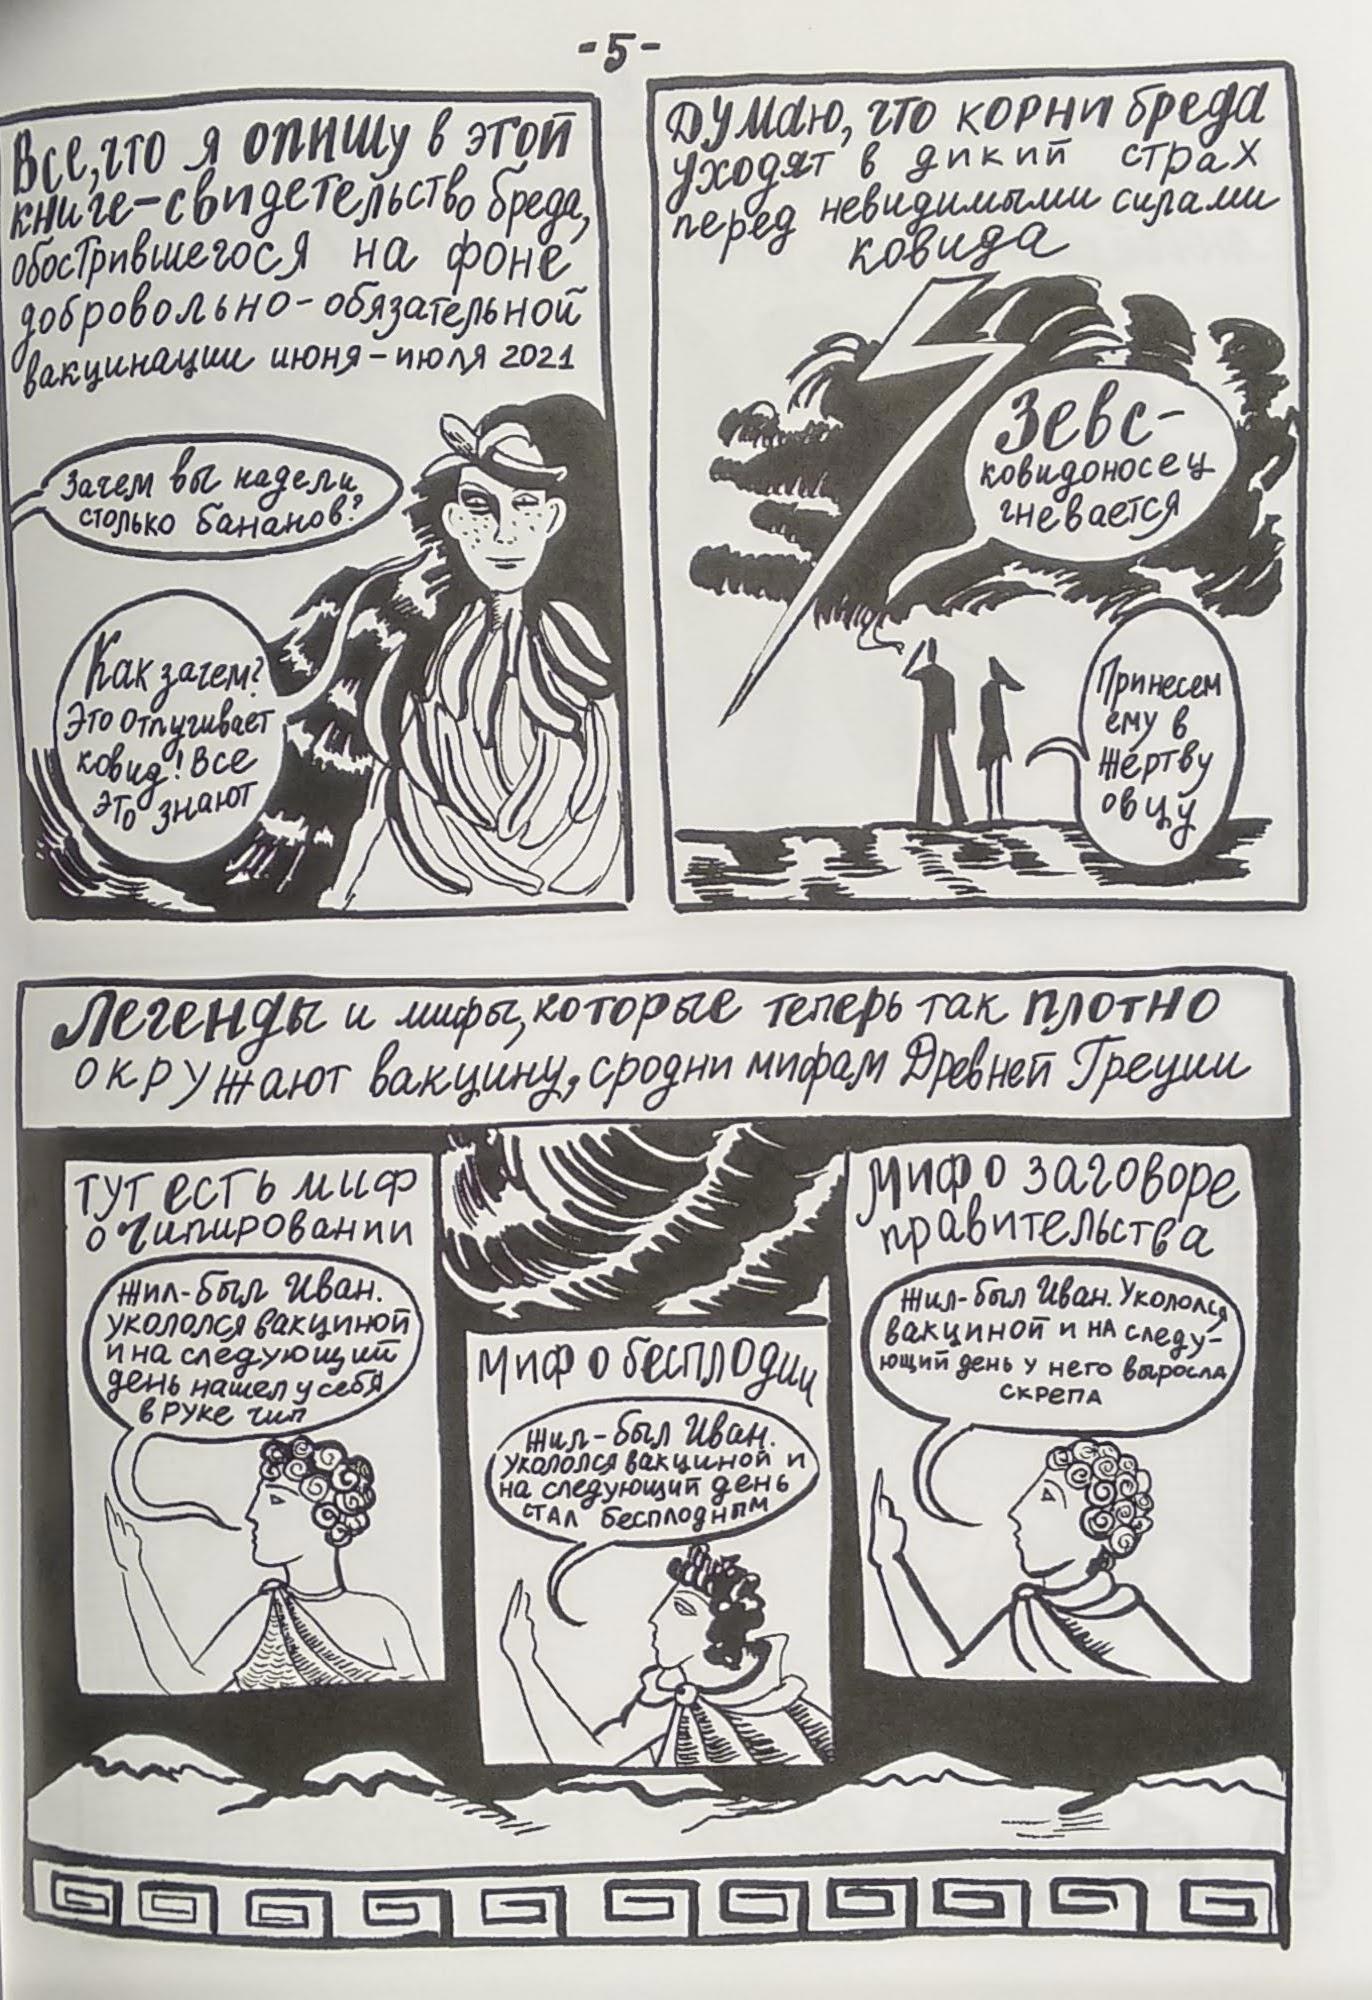 -5-
Все, что я опишу в этой
книге-свидетельство бреда,
обострившегося на фоне
добровольно-обязательной
вакцинации июня-июля 2021
Зачем вы надели
столько бананов?
Как зачем?
Это отпугивает
ковид! Все
это знают
Думаю, что корни бреда
уходят в дикий страх
перед невидимыми силами
ковида
Зевс-
ковидоносец
гневается
Принесем
ему в
жертву
овцу
Легенды и мифы, которые теперь так плотно
окружают вакцину, сродни мифам Древней Греции
Тут есть миф
о чипировании
Жил-был Иван.
укололся вакциной
и на следующий
день нашел у себя
в руке чип
Миф о бесплодии
Жил-был Иван.
укололся вакциной и
на следующий день
стал бесплодным
Миф о заговоре
правительства
Жил-был Иван. Укололся
вакциной и на следу-
ющий день у него выросла
скрепа